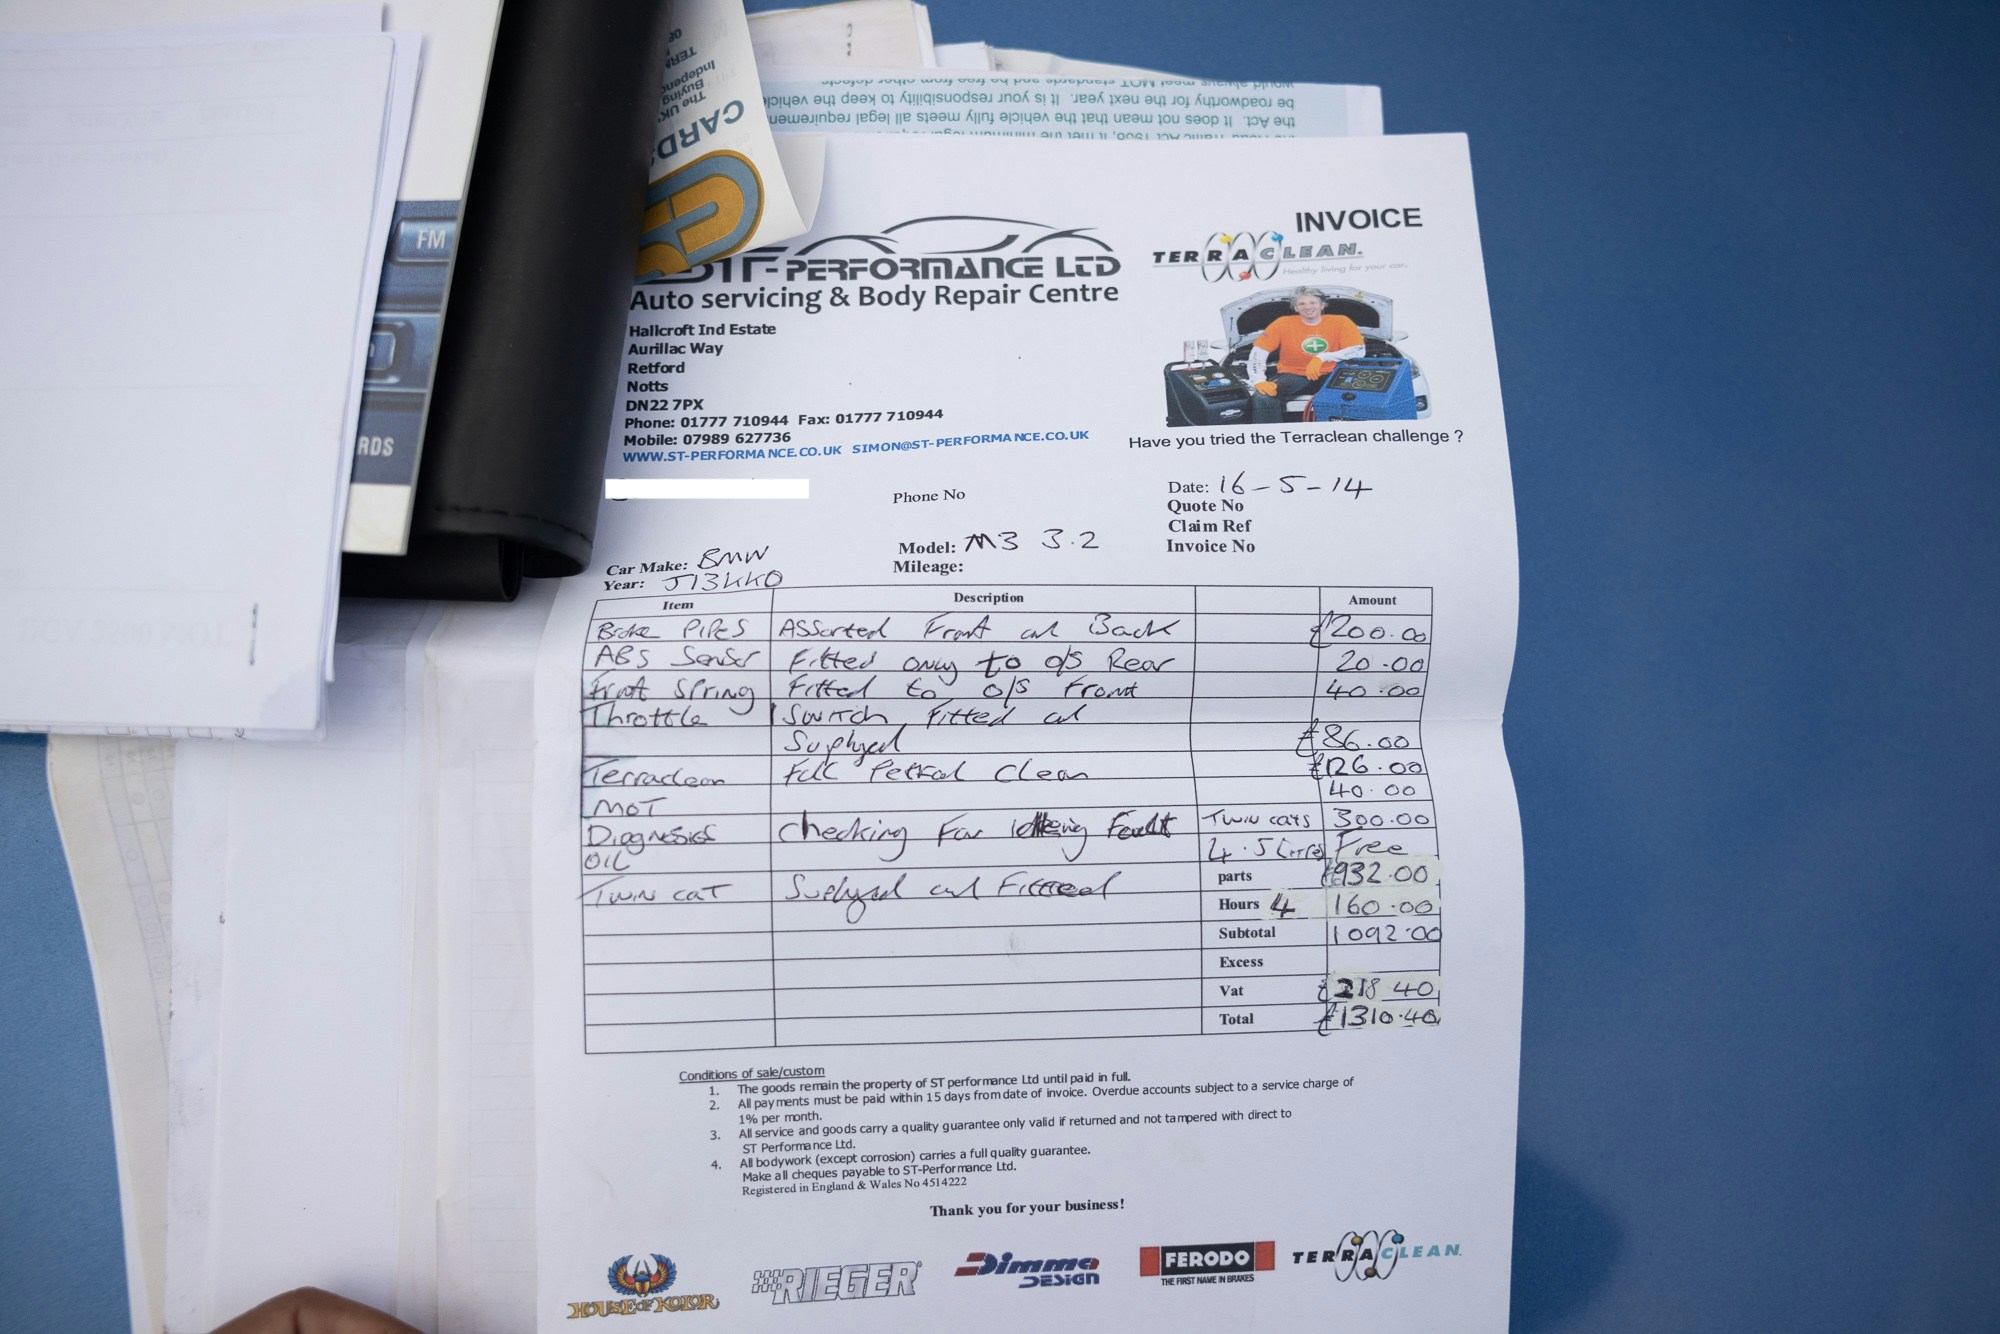 would always meet MOT standards and be free from other defects
be roadworthy for the next year. It is your responsibility to keep the vehicle
the Act. It does not mean that the vehicle fully meets all legal requirements
FM
RDS
CARDS
The UK'
Buying
Independ
TERN
INVOICE
ST-PERFORMANCE LTD
TERRACLEAN.
Healthy living for your car.
Auto servicing & Body Repair Centre
Hallcroft Ind Estate
Aurillac Way
Retford
Notts
DN22 7PX
Phone: 01777 710944 Fax: 01777 710944
Mobile: 07989 627736
WWW.ST-PERFORMANCE.CO.UK SIMON@ST-PERFORMANCE.CO.UK
Have you tried the Terraclean challenge ?
Phone No
Date: 16-5-14
Quote No
Claim Ref
Invoice No
Car Make: BMW
Model: M3 3.2
Year: J13KKO
Mileage:
Item Description Amount
Brake PIPES Assorted Front and Back £200.00
ABS Sensor Fitted only to o/s Rear 20.00
Front Spring Fitted to o/s Front 40.00
Throttle Switch, Fitted and
Suplyed £86.00
Terraclean Full Petrol Clean £126.00
MOT 40.00
Diagnosics checking For Fault Twin cats 300.00
OIL 4.5 Litres Free
parts £932.00
Twin cat Suplyed and Fitteed
Hours 4 160.00
Subtotal 1092.00
Excess
Vat £218.40
Total £1310.40
Conditions of sale/custom
1. The goods remain the property of ST performance Ltd until paid in full.
2. All payments must be paid within 15 days from date of invoice. Overdue accounts subject to a service charge of
1% per month.
3. All service and goods carry a quality guarantee only valid if returned and not tampered with direct to
ST Performance Ltd.
4. All bodywork (except corrosion) carries a full quality guarantee.
Make all cheques payable to ST-Performance Ltd.
Registered in England & Wales No 4514222
Thank you for your business!
HOUSE OF KOLOR
RIEGER
Dimma
DESIGN
FERODO
THE FIRST NAME IN BRAKES
TERRACLEAN.